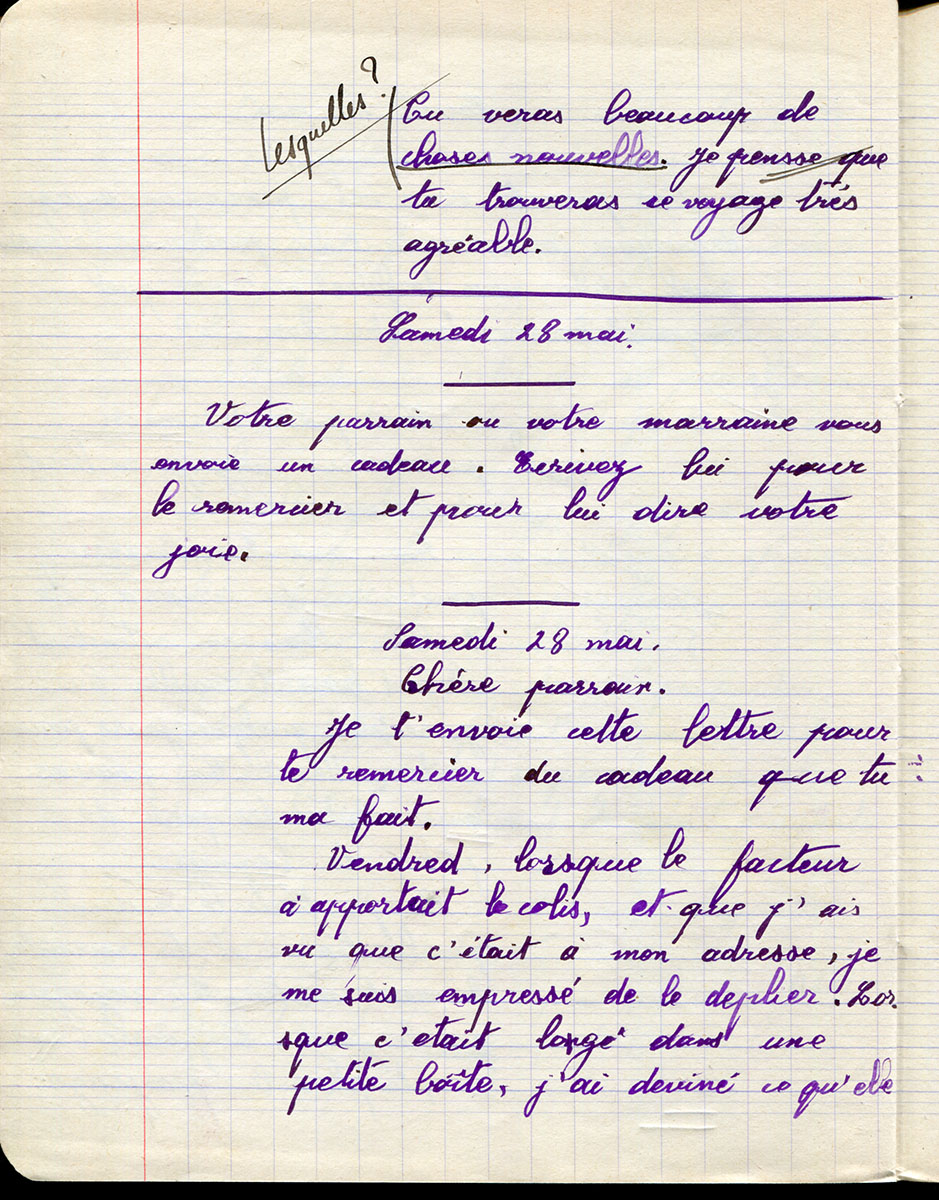 Lesquelles?
Tu veras beaucoup de
choses nouvelles. Je pensse que
tu trouveras ce voyage trés
agréable.
Samedi 28 mai.
Votre parrain ou votre marraine vous
envoie un cadeau. Ecrivez lui pour
le remercier et pour lui dire votre
joie.
Samedi 28 mai.
Chére parrain.
Je t'envoie cette lettre pour
te remercier du cadeau que tu
ma fait.
Vendred, lorsque le facteur
à apportait le colis, et que j'ais
vu que c'était à mon adresse, je
me suis empressé de le deplier. Lor
sque c'etait logé dans une
petite boîte, j'ai deviné ce qu'elle